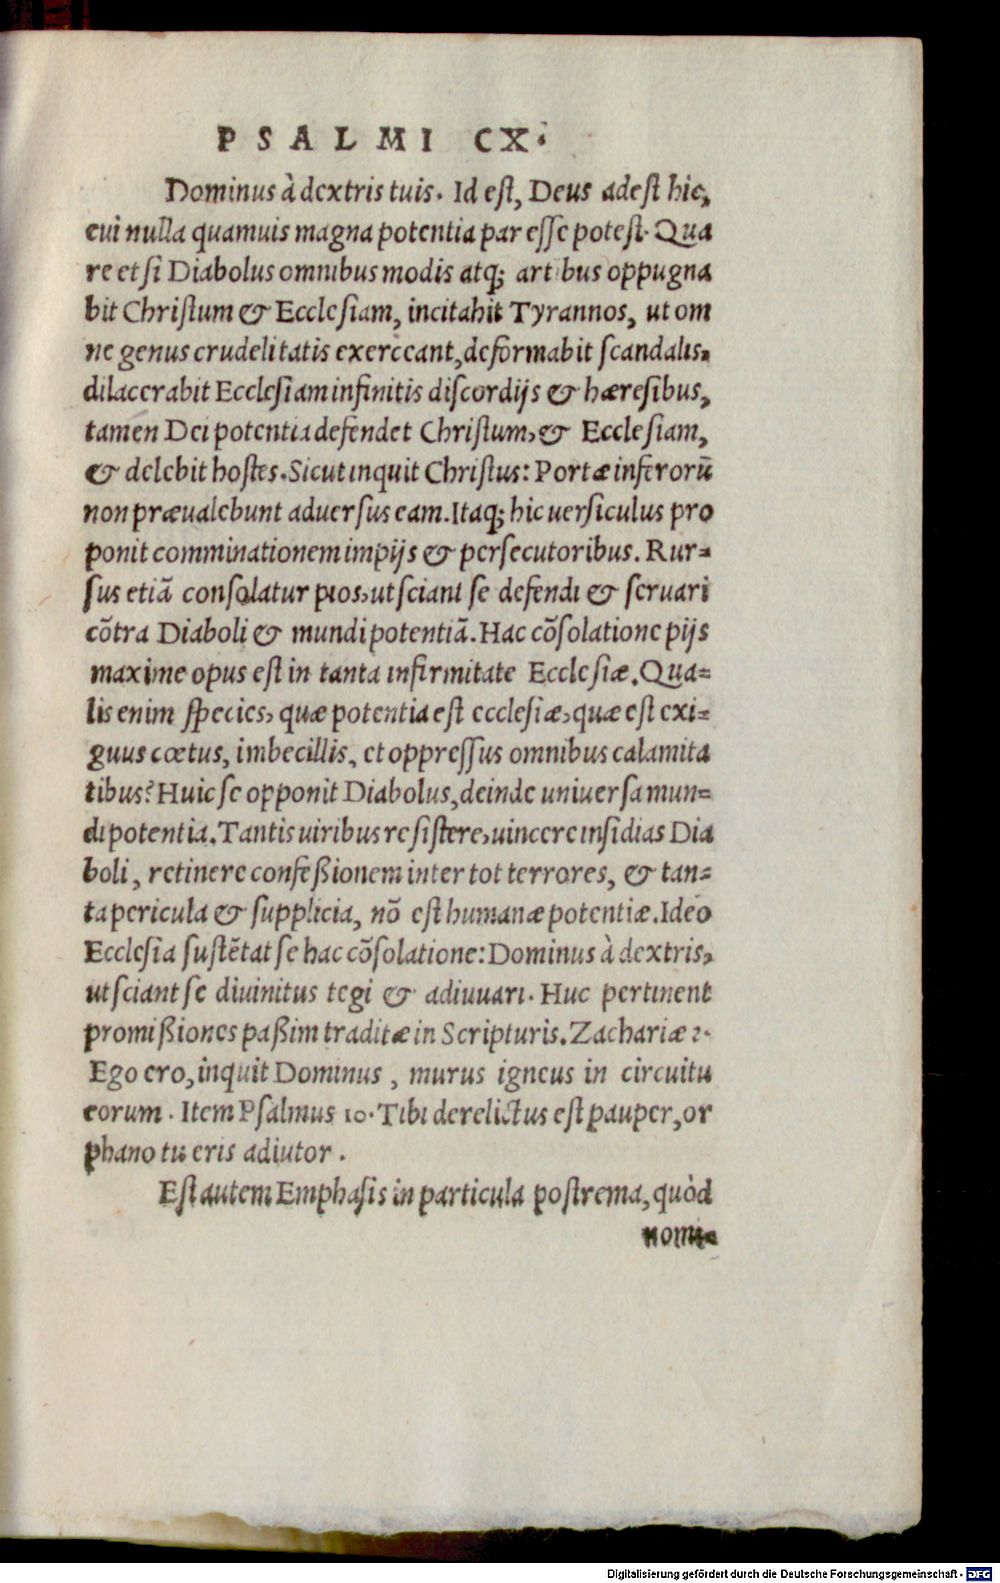 PSALMI CX.
Dominus à dextris tuis. Id est, Deus adest hic,
cui nulla quamuis magna potentia par esse potest. Qua
re etsi Diabolus omnibus modis atq; artibus oppugna
bit Christum & Ecclesiam, incitabit Tyrannos, ut om
ne genus crudelitatis exerceant, deformabit scandalis,
dilacerabit Ecclesiam infinitis discordijs & hæresibus,
tamen Dei potentia defendet Christum, & Ecclesiam,
& delebit hostes. Sicut inquit Christus: Portæ inferorū
non præualebunt aduersus eam. Itaq; hic uersiculus pro
ponit comminationem impijs & persecutoribus. Rur-
sus etiā consolatur pios, ut sciant se defendi & seruari
cōtra Diaboli & mundi potentiā. Hac cōsolatione pijs
maxime opus est in tanta infirmitate Ecclesiæ. Qua-
lis enim species, quæ potentia est ecclesiæ, quæ est exi-
guus cœtus, imbecillis, et oppressus omnibus calamita
tibus? Huic se opponit Diabolus, deinde uniuersa mun-
di potentia. Tantis uiribus resistere, uincere insidias Dia
boli, retinere confeßionem inter tot terrores, & tan-
ta pericula & supplicia, nō est humanæ potentiæ. Ideo
Ecclesia sustētat se hac cōsolatione: Dominus à dextris,
ut sciant se diuinitus tegi & adiuuari. Huc pertinent
promißiones paßim traditæ in Scripturis. Zachariæ 2.
Ego ero, inquit Dominus, murus igneus in circuitu
eorum. Item Psalmus 10. Tibi derelictus est pauper, or
phano tu eris adiutor.
Est autem Emphasis in particula postrema, quòd
nomi-
Digitalisierung gefördert durch die Deutsche Forschungsgemeinschaft - DFG